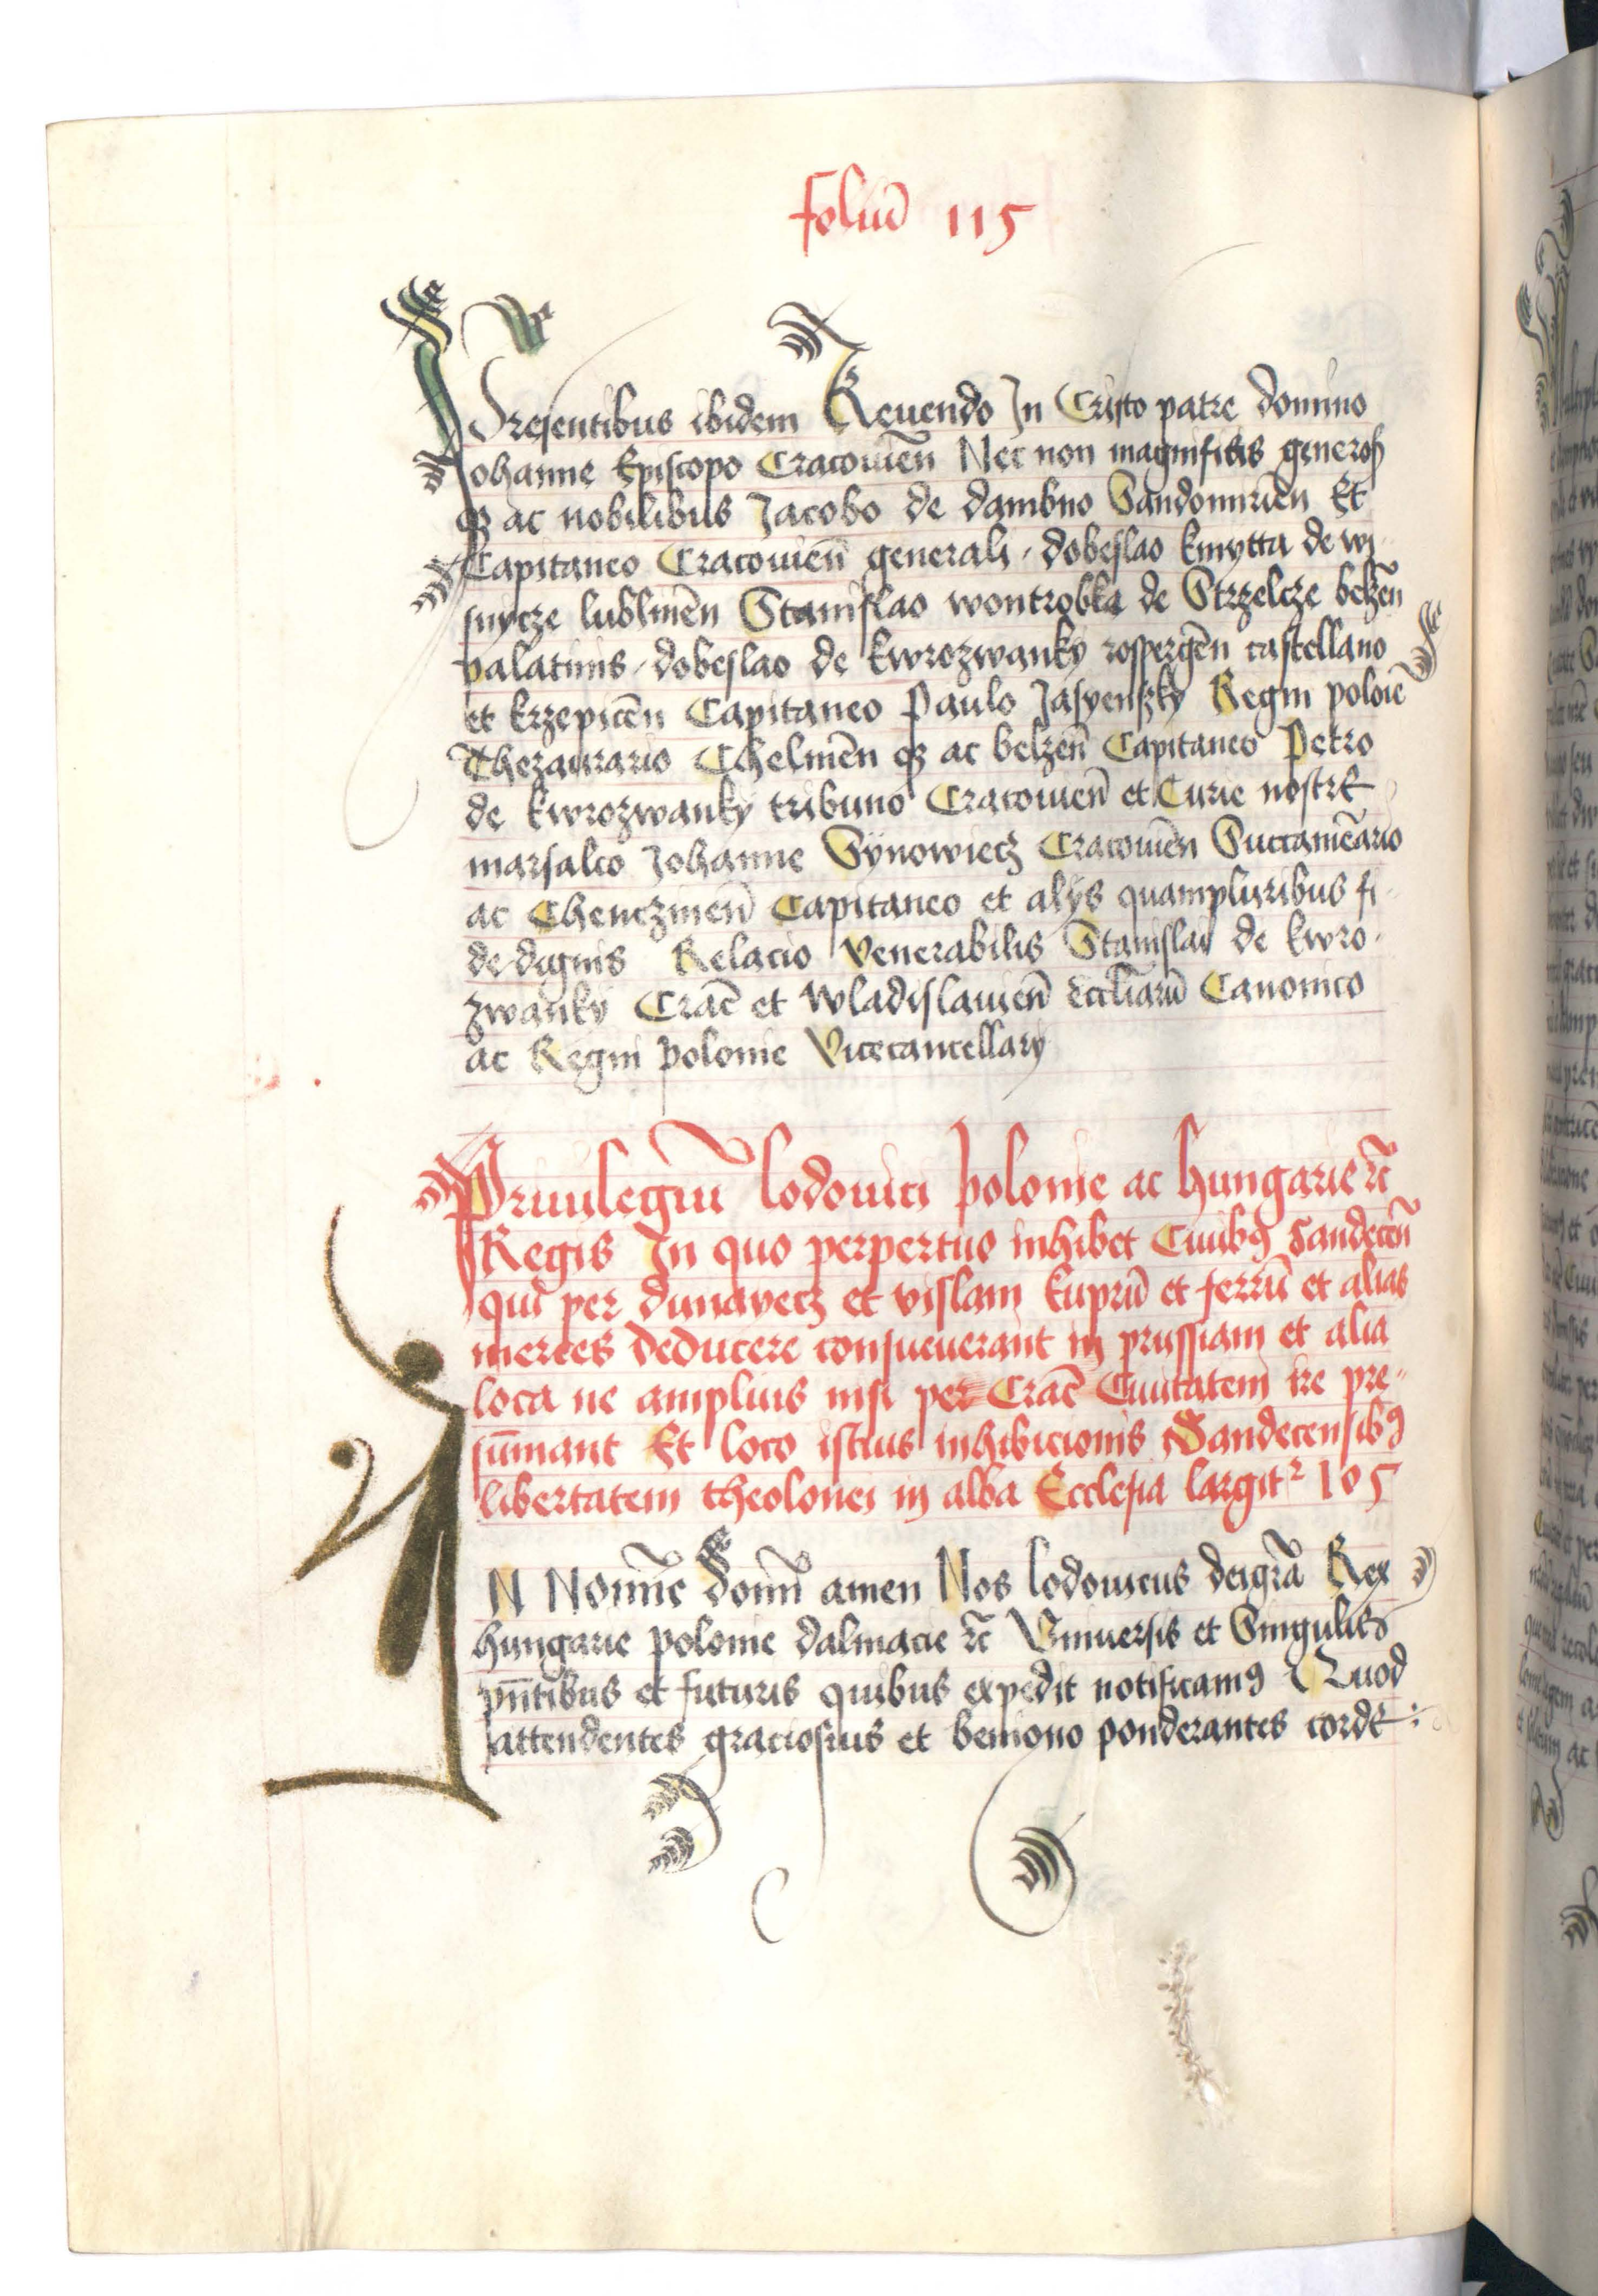 foliū 115
Presentibus ibidem Reuendo In Cristo patre domino
Johanne Episcopo Cracouieñ Nec non magnificis generoß
qʒ ac nobilibus Jacobo de dambno Sandomirieñ Et
Capitaneo Cracouieñ generali, dobeslao kmytta de wi-
snycze lublineñ Stanislao wontrobka de Strzelcze belzeñ
palatinis, dobeslao de kwrozwanky rosspergeñ castellano
et krzepiceñ Capitaneo Paulo Jasyenßky Regni polonie
Thezaurario Chelmeñ qʒ ac belzeñ Capitaneo Petro
de kwrozwanky tribuno Cracouieñ et Curie nostre
marsalco Johanne Synowiecz Cracouieñ Succamerario
ac Chenczineñ Capitaneo et alys quampluribus fi-
dedignis Relacio Venerabilis Stanislai de kwro-
zwanky Crac̄ et wladislauieñ eccliarū Canonico
ac Regni polonie Vicecancellary
Priuilegiū lodouici polonie ac hungarie ꝛc̄
Regis In quo perpertuo inhibet Ciuibꝯ Sandeceñ
qui per dunayecz et vislam kuprū et ferrū et alias
merces deducere consueuerant in prussiam et alia
loca ne amplius nisi per Crac̄ Ciuitatem ire pre-
sūmant Et loco istius inhibicionis Sandecensibꝯ
libertatem theolonei in alba Ecclesia largitᷣ 105
IN Nomīe Domī amen Nos lodouicus deigrā Rex
hungarie polonie dalmacie ꝛc̄ Vniuersis et Singulis
pn̄tibus et futuris quibus expedit notificamꝯ Quod
attendentes graciosius et benigno ponderantes corde: